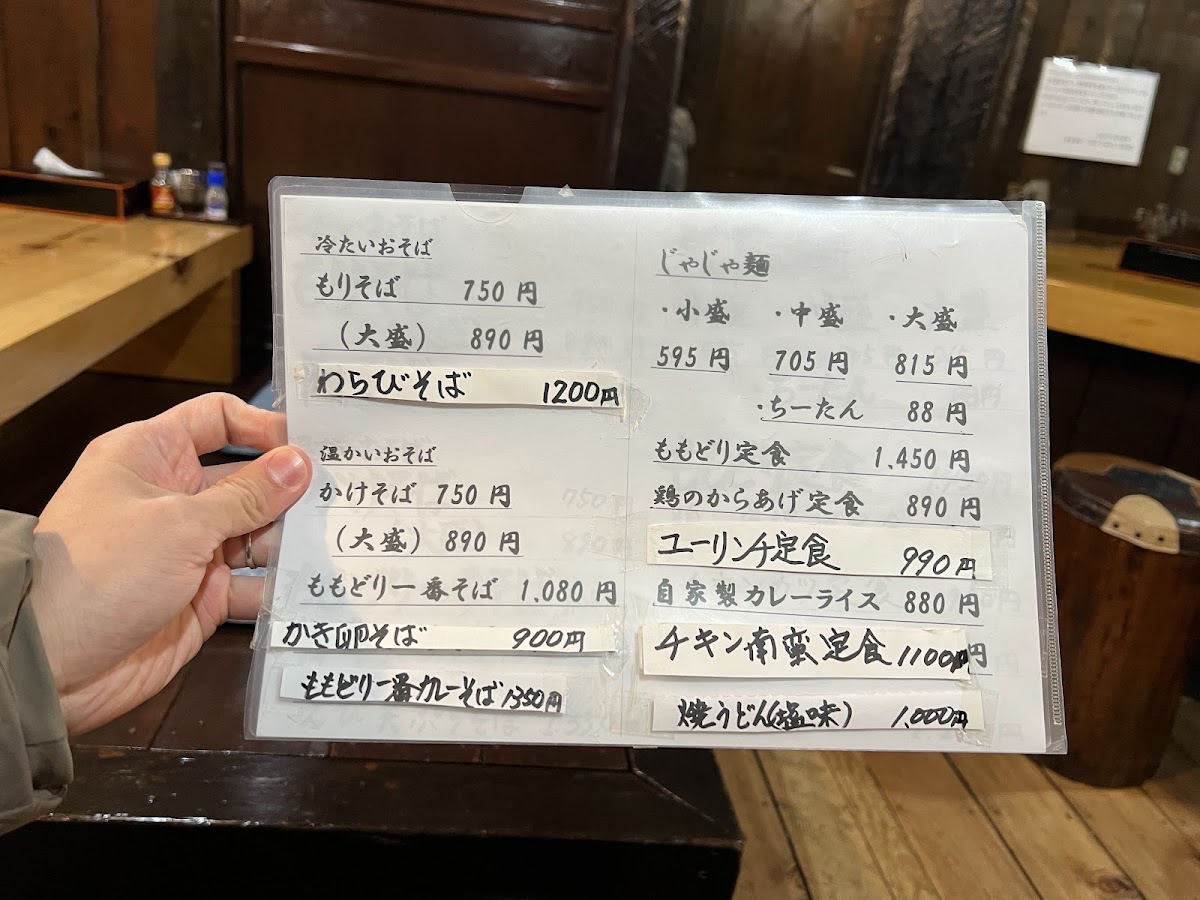 冷たいおそば
もりそば 750 円
(大盛) 890 円
わらびそば 1200円
温かいおそば
かけそば 750 円
(大盛) 890 円
ももどり一番そば 1,080 円
かき卵そば 900円
ももどり一番カレーそば 1350円
じゃじゃ麺
・小盛 ・中盛 ・大盛
595 円 705 円 815 円
・ちーたん 88 円
ももどり定食 1,450 円
鶏のからあげ定食 890 円
ユーリンチ定食 990円
自家製カレーライス 880 円
チキン南蛮定食 1100円
焼うどん(塩味) 1,000円